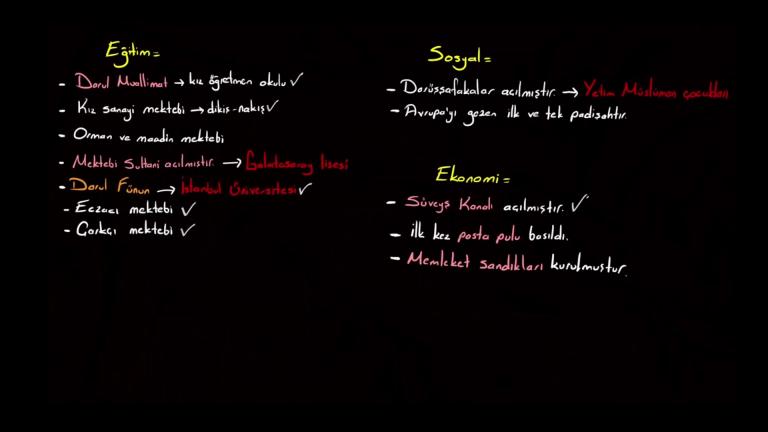 Eğitim=
- Darul Muallimat → kız öğretmen okulu ✓
- Kız sanayi mektebi → dikiş-nakış ✓
- Orman ve maadin mektebi
- Mektebi Sultani açılmıştır. → Galatasaray lisesi
- Darul Fünun → İstanbul Üniversitesi ✓
- Eczacı mektebi ✓
- Çarkçı mektebi ✓
Sosyal=
- Darüşşafakalar açılmıştır. → Yetim Müslüman çocukları
- Avrupa'yı gezen ilk ve tek padişahtır.
Ekonomi=
- Süveyş Kanalı açılmıştır. ✓
- İlk kez posta pulu basıldı.
- Memleket sandıkları kurulmuştur.